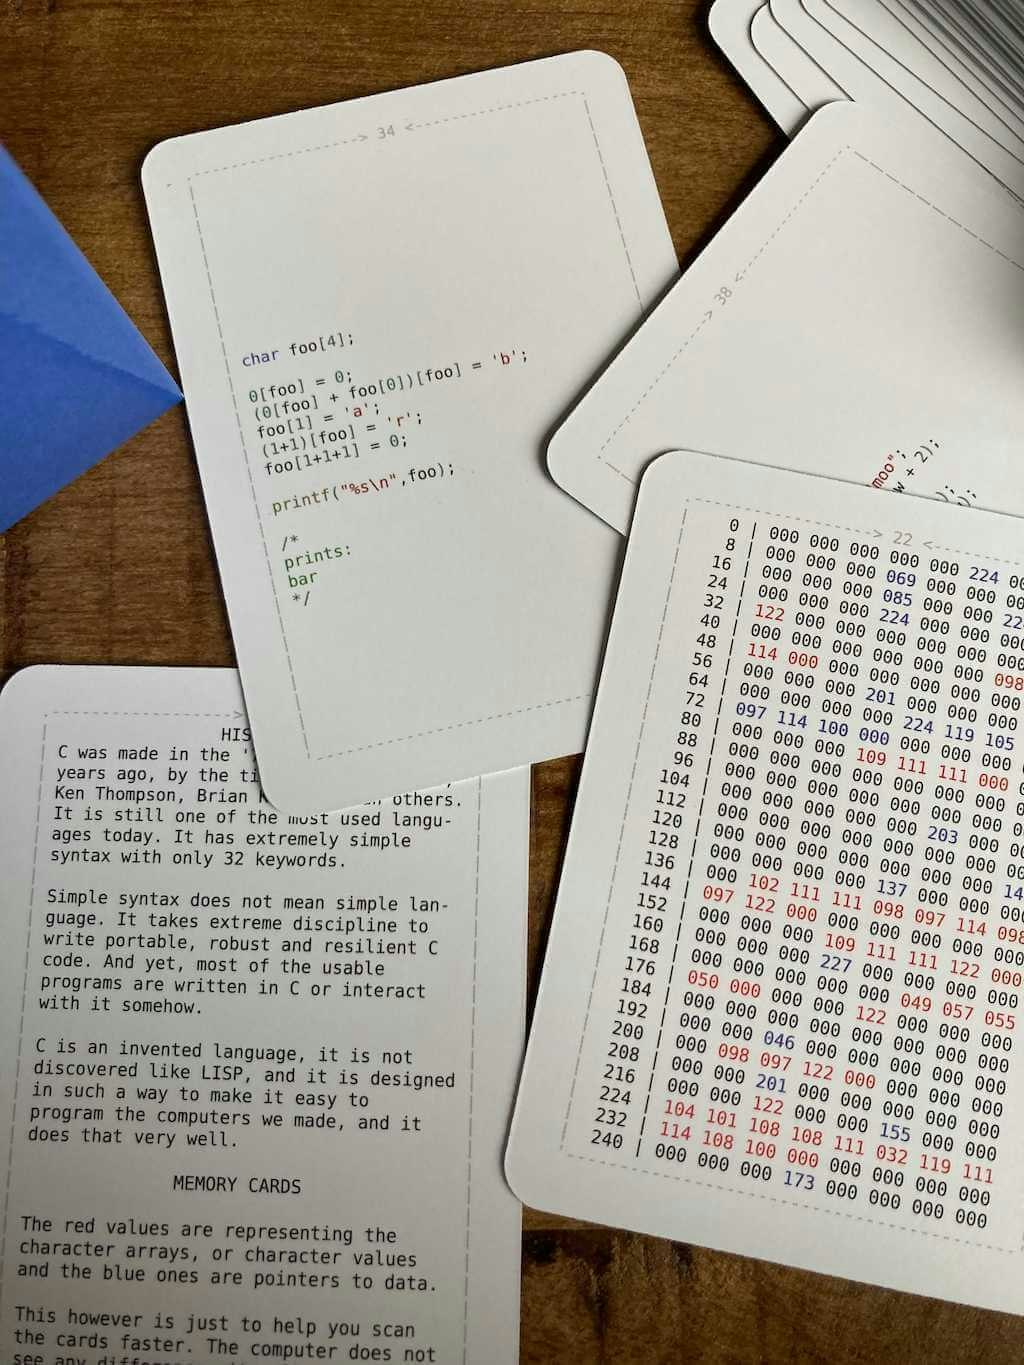 > 34 <
char foo[4];
0[foo] = 0;
(0[foo] + foo[0])[foo] = 'b';
foo[1] = 'a';
(1+1)[foo] = 'r';
foo[1+1+1] = 0;
printf("%s\n",foo);
/*
prints:
bar
*/
> 38 <
moo";
w + 2);
);
> 22 <
0 | 000 000 000 000 000 224
8 | 000 000 000 069 000 000
16 | 000 000 000 085 000 000
24 | 000 000 000 224 000 000
32 | 122 000 000 000 000 000 098
40 | 000 000 000 000 000 000 000
48 | 114 000 000 000 000 000 000
56 | 000 000 000 201 000 000 000
64 | 000 000 000 000 224 119 105
72 | 097 114 100 000 000 000 000
80 | 000 000 000 109 111 111 000
88 | 000 000 000 000 000 000 000
96 | 000 000 000 000 000 000 000
104 | 000 000 000 000 000 203 000
112 | 000 000 000 000 000 000 000
120 | 000 000 000 000 000 000 000
128 | 000 000 000 000 137 000 000 14
136 | 000 102 111 111 098 097 114 098
144 | 097 122 000 000 000 000 000 000
152 | 000 000 000 109 111 111 122 000
160 | 000 000 000 227 000 000 000 000
168 | 000 000 000 000 000 049 057 055
176 | 050 000 000 000 122 000 000 000
184 | 000 000 000 000 000 000 000 000
192 | 000 000 046 000 000 000 000 000
200 | 000 098 097 122 000 000 000 000
208 | 000 000 201 000 000 000 000 000
216 | 000 000 122 000 000 155 000 000
224 | 104 101 108 108 111 032 119 111
232 | 114 108 100 000 000 000 000 000
240 | 000 000 000 173 000 000 000 000
HIS
C was made in the '
years ago, by the ti
Ken Thompson, Brian others.
It is still one of the most used langu-
ages today. It has extremely simple
syntax with only 32 keywords.
Simple syntax does not mean simple lan-
guage. It takes extreme discipline to
write portable, robust and resilient C
code. And yet, most of the usable
programs are written in C or interact
with it somehow.
C is an invented language, it is not
discovered like LISP, and it is designed
in such a way to make it easy to
program the computers we made, and it
does that very well.
MEMORY CARDS
The red values are representing the
character arrays, or character values
and the blue ones are pointers to data.
This however is just to help you scan
the cards faster. The computer does not
see any